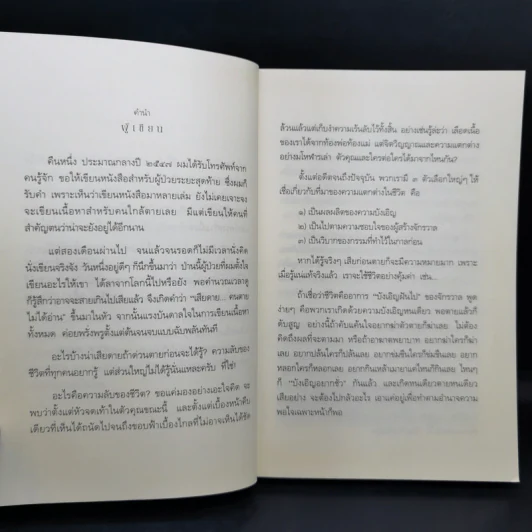 คำนำ
ผู้เขียน
คืนหนึ่ง ประมาณกลางปี ๒๕๔๗ ผมได้รับโทรศัพท์จาก
คนรู้จัก ขอให้เขียนหนังสือสำหรับผู้ป่วยระยะสุดท้าย ซึ่งผมก็
รับคำ เพราะเห็นว่าเขียนหนังสือมาหลายเล่ม ยังไม่เคยเจาะจง
จะเขียนเนื้อหาสำหรับคนใกล้ตายเลย มีแต่เขียนให้คนที่
สำคัญตนว่าน่าจะยังอยู่ได้อีกนาน
แต่สองเดือนผ่านไป จนแล้วจนรอดก็ไม่มีเวลานั่งคิด
นั่งเขียนจริงจัง วันหนึ่งอยู่ดีๆ ก็นึกขึ้นมาว่า ป่านนี้ผู้ป่วยที่ผมตั้งใจ
เขียนอะไรให้เขา ได้ลาจากโลกนี้ไปหรือยัง พอคำนวณเวลาดู
ก็รู้สึกว่าอาจจะสายเกินไปเสียแล้ว จึงเกิดคำว่า "เสียดาย... คนตาย
ไม่ได้อ่าน" ขึ้นมาในหัว จากนั้นแรงบันดาลใจในการเขียนเนื้อหา
ทั้งหมด ค่อยพรั่งพรูตั้งแต่ต้นจนจบแบบฉับพลันทันที
อะไรบ้างน่าเสียดายถ้าด่วนตายก่อนจะได้รู้? ความลับของ
ชีวิตที่ทุกคนอยากรู้ แต่ส่วนใหญ่ไม่ได้รู้นั่นแหละครับ ที่ใช่!
อะไรคือความลับของชีวิต? ขอแค่มองอย่างเอะใจคิด จะ
พบว่าตั้งแต่หัวจดเท้าในตัวคุณขณะนี้ และตั้งแต่เบื้องหน้าคืบ
เดียวที่เห็นได้ถนัดไปจนถึงขอบฟ้าเบื้องไกลที่ไม่อาจเห็นได้ชัด
ล้วนแล้วแต่เก็บงำความเร้นลับไว้ทั้งสิ้น อย่างเช่นรู้ล่ะว่า เลือดเนื้อ
ของเราได้จากท้องพ่อท้องแม่ แต่จิตวิญญาณและความแตกต่าง
อย่างมโหฬารเล่า ตัวคุณและใครต่อใครได้มาจากไหนกัน?
ตั้งแต่อดีตจนถึงปัจจุบัน พวกเรามี ๓ ตัวเลือกใหญ่ๆ ให้
เชื่อเกี่ยวกับที่มาของความแตกต่างในชีวิต คือ
๑) เป็นผลผลิตของความบังเอิญ
๒) เป็นไปตามความชอบใจของผู้สร้างจักรวาล
๓) เป็นวิบากของกรรมที่ทำไว้ในกาลก่อน
หากได้รู้จริงๆ เสียก่อนตายก็จะมีความหมายมาก เพราะ
เมื่อรู้แน่แท้จริงแล้ว เราจะใช้ชีวิตอย่างคุ้มค่า เช่น...
ถ้าเชื่อว่าชีวิตคืออาการ "บังเอิญฝันไป" ของจักรวาล พูด
ง่ายๆ คือพวกเราเกิดจากความบังเอิญหนเดียว พอตายแล้วก็
ดับสูญ อย่างนี้ถ้าคับแค้นใจอยากฆ่าตัวตายก็ฆ่าเลย ไม่ต้อง
คิดถึงผลที่จะตามมา หรือถ้าอาฆาตพยาบาท อยากฆ่าใครก็ฆ่า
เลย อยากปล้นใครก็ปล้นเลย อยากข่มขืนใครก็ข่มขืนเลย อยาก
หลอกใครก็หลอกเลย อยากกินเหล้าเมาแอ๋แค่ไหนก็กินเลย ไหนๆ
ก็ "บังเอิญอยากชั่ว" กันแล้ว และเกิดหนเดียวตายหนเดียว
เสียอย่าง จะต้องไปกลัวอะไร เอาแค่อยู่เพื่อทำตามอำนาจความ
พอใจเฉพาะหน้าก็พอ